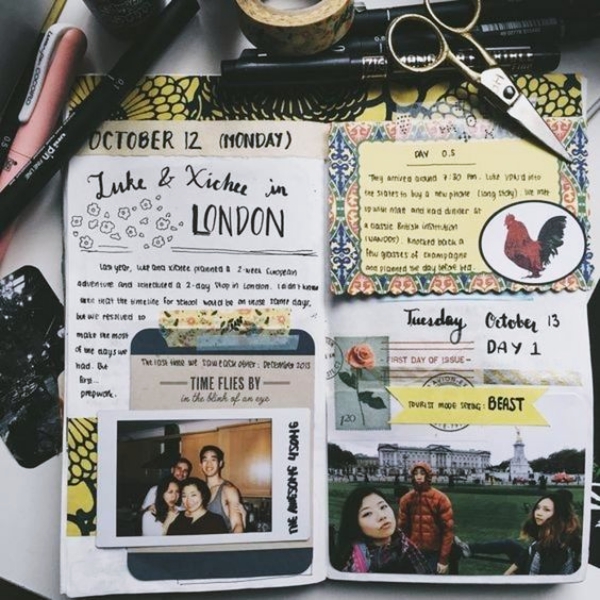 OCTOBER 12 (MONDAY)
Luke & Xichee in
LONDON
last year, Luke and Xichee planned a 2-week European
adventure and scheduled a 2-day stop in London. I didn't know
until that the timeline for school would be on those same days,
but we resolved to
make the most
of the days we
had. But
first...
prepwork.
The last time we saw each other: December 2013
TIME FLIES BY
in the blink of an eye
THE AWESOME 4SOME
DAY 0.5
They arrived around 7:30 pm. Luke
the states to buy a new phone (long story). We met
up with Matt and had dinner at
a classic British institution
(NANDOS). Knocked back a
few glasses of champagne
and planned the day before bed.
Tuesday October 13
DAY 1
FIRST DAY OF ISSUE
TOURIST MODE SETTING: BEAST